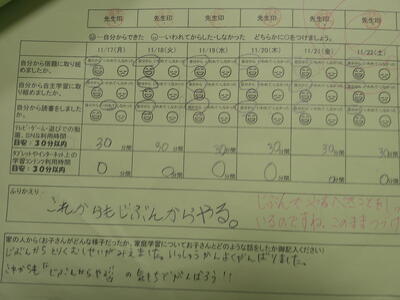 先生印 先生印 先生印 先生印 先生印 先生印
自分からできた いわれてからした・しなかった どちらかに○をつけましょう。
11/17(月) 11/18(火) 11/19(水) 11/20(木) 11/21(金) 11/22(土)
自分から宿題に取り組めましたか。
自分から自主学習に取り組めましたか。
自分から読書をしましたか。
テレビ・ゲーム・遊びでの動画、SNS利用時間
目安:30分以内
30分間 30分間 30分間 30分間 30分間 30分間
タブレットやインターネット上の学習コンテンツ利用時間
目安:30分以内
0分間 0分間 0分間 0分間 0分間 0分間
ふりかえり
これからもじぶんからやる。
じぶんで
いるのですね。このままつづけ
家の人から(お子さんがどんな様子だったか、家庭学習についてお子さんとどのような話をしたか御記入ください)
じぶんからとりくむしせいがみえました。いっしゅうかんよくがんばりました。
これからも「じぶんからやる」の気もちでがんばろう!!